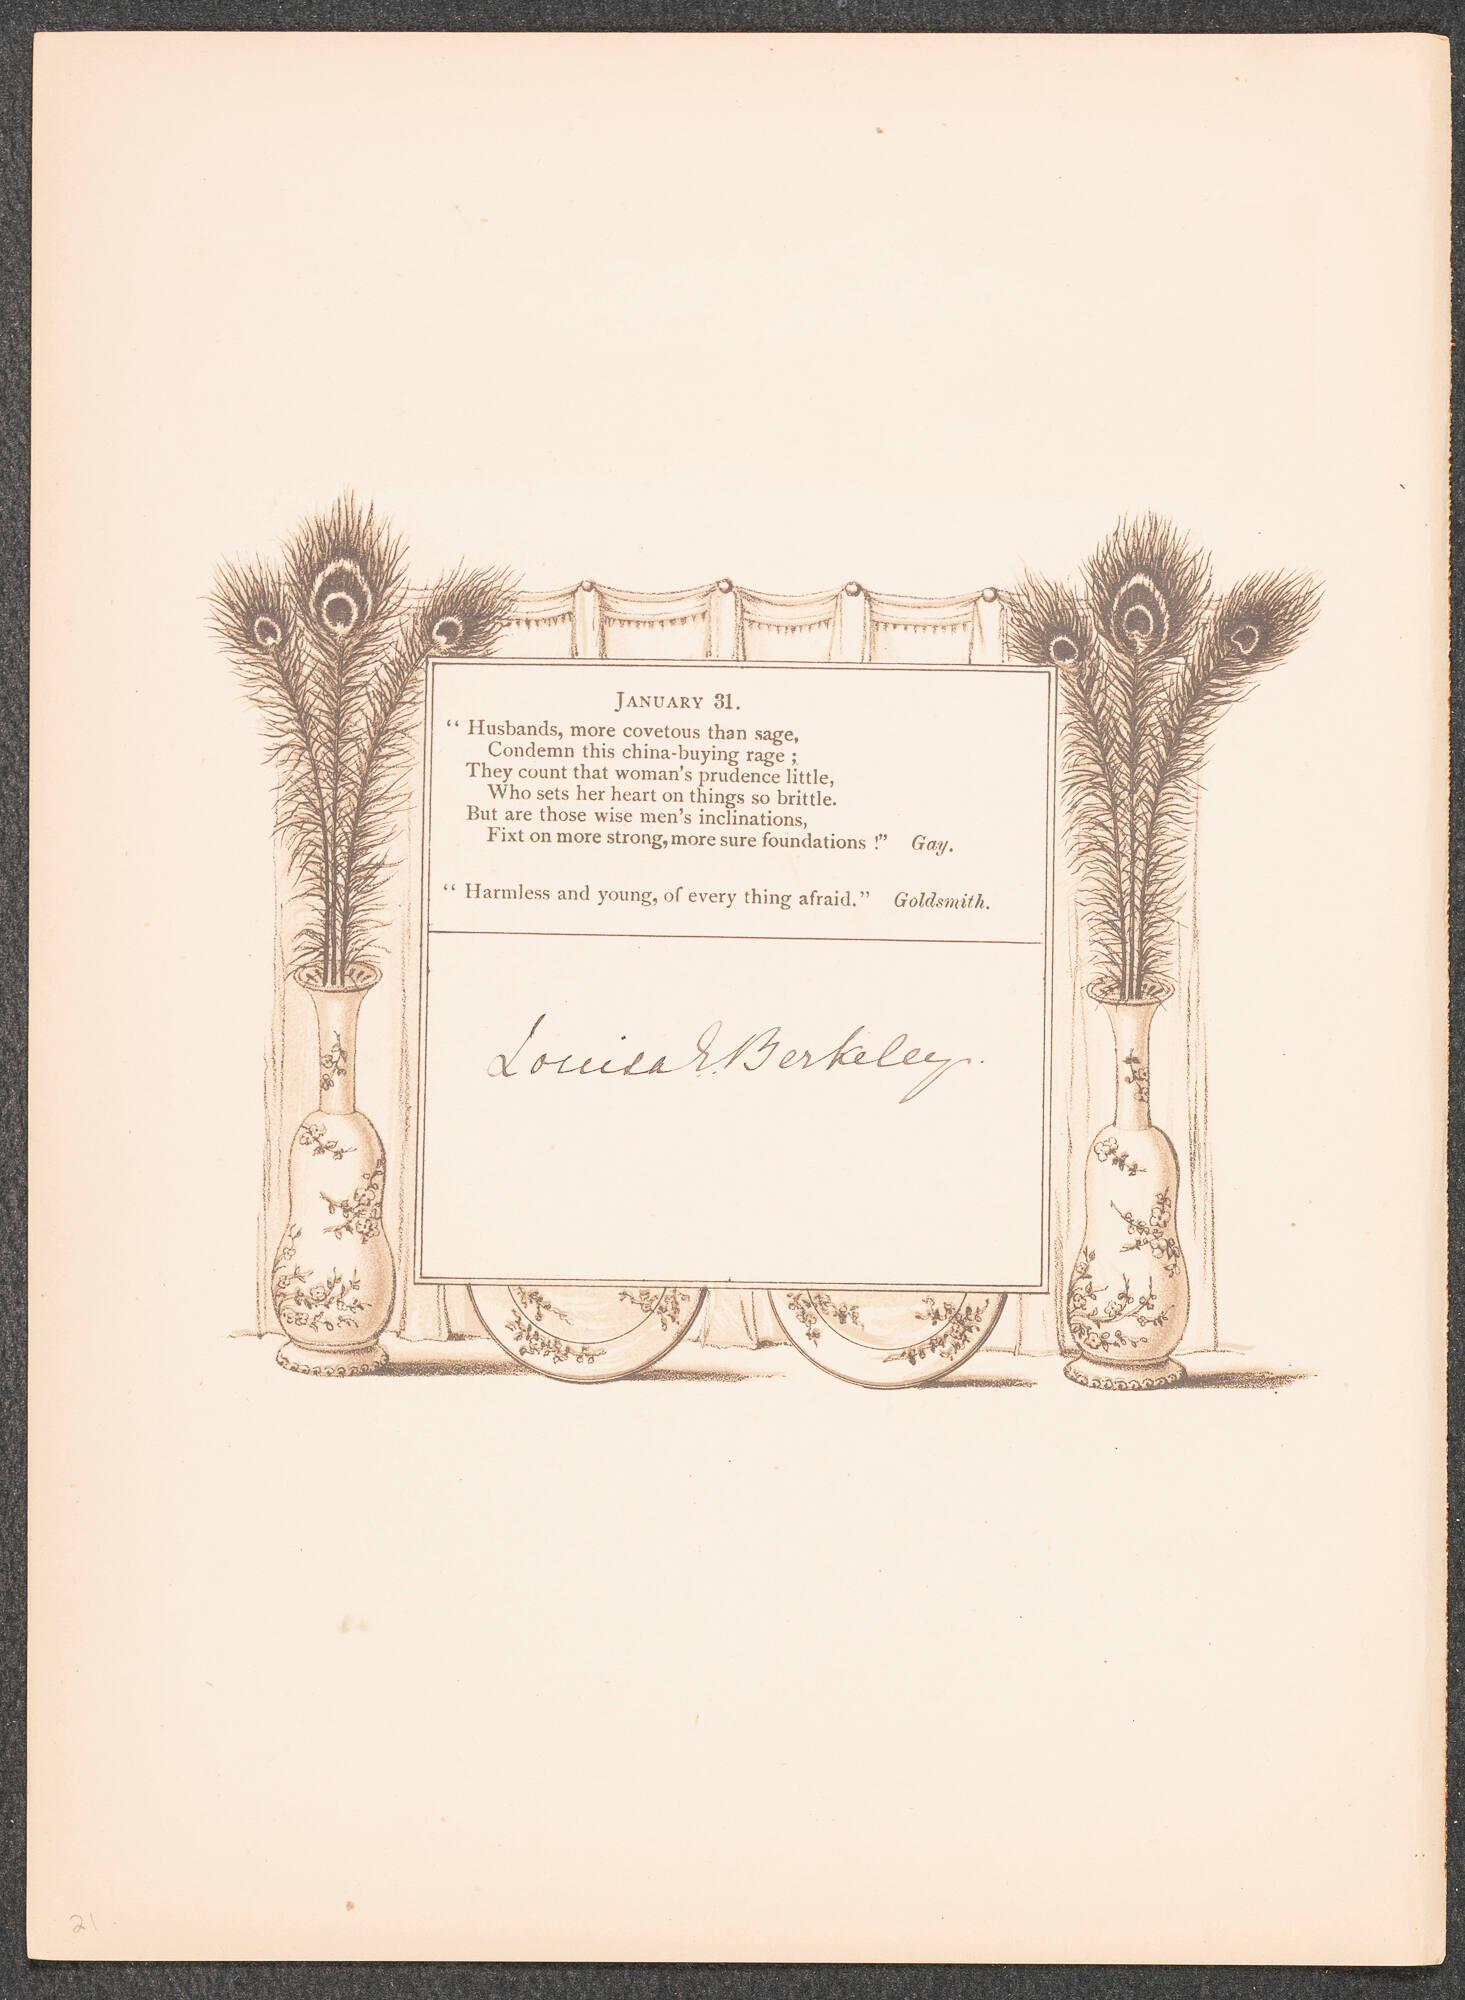 JANUARY 31.
“ Husbands, more covetous than sage,
Condemn this china-buying rage ;
They count that woman's prudence little,
Who sets her heart on things so brittle.
But are those wise men's inclinations,
Fixt on more strong, more sure foundations !” Gay.
“ Harmless and young, of every thing afraid.” Goldsmith.
Louisa E. Berkeley.
21